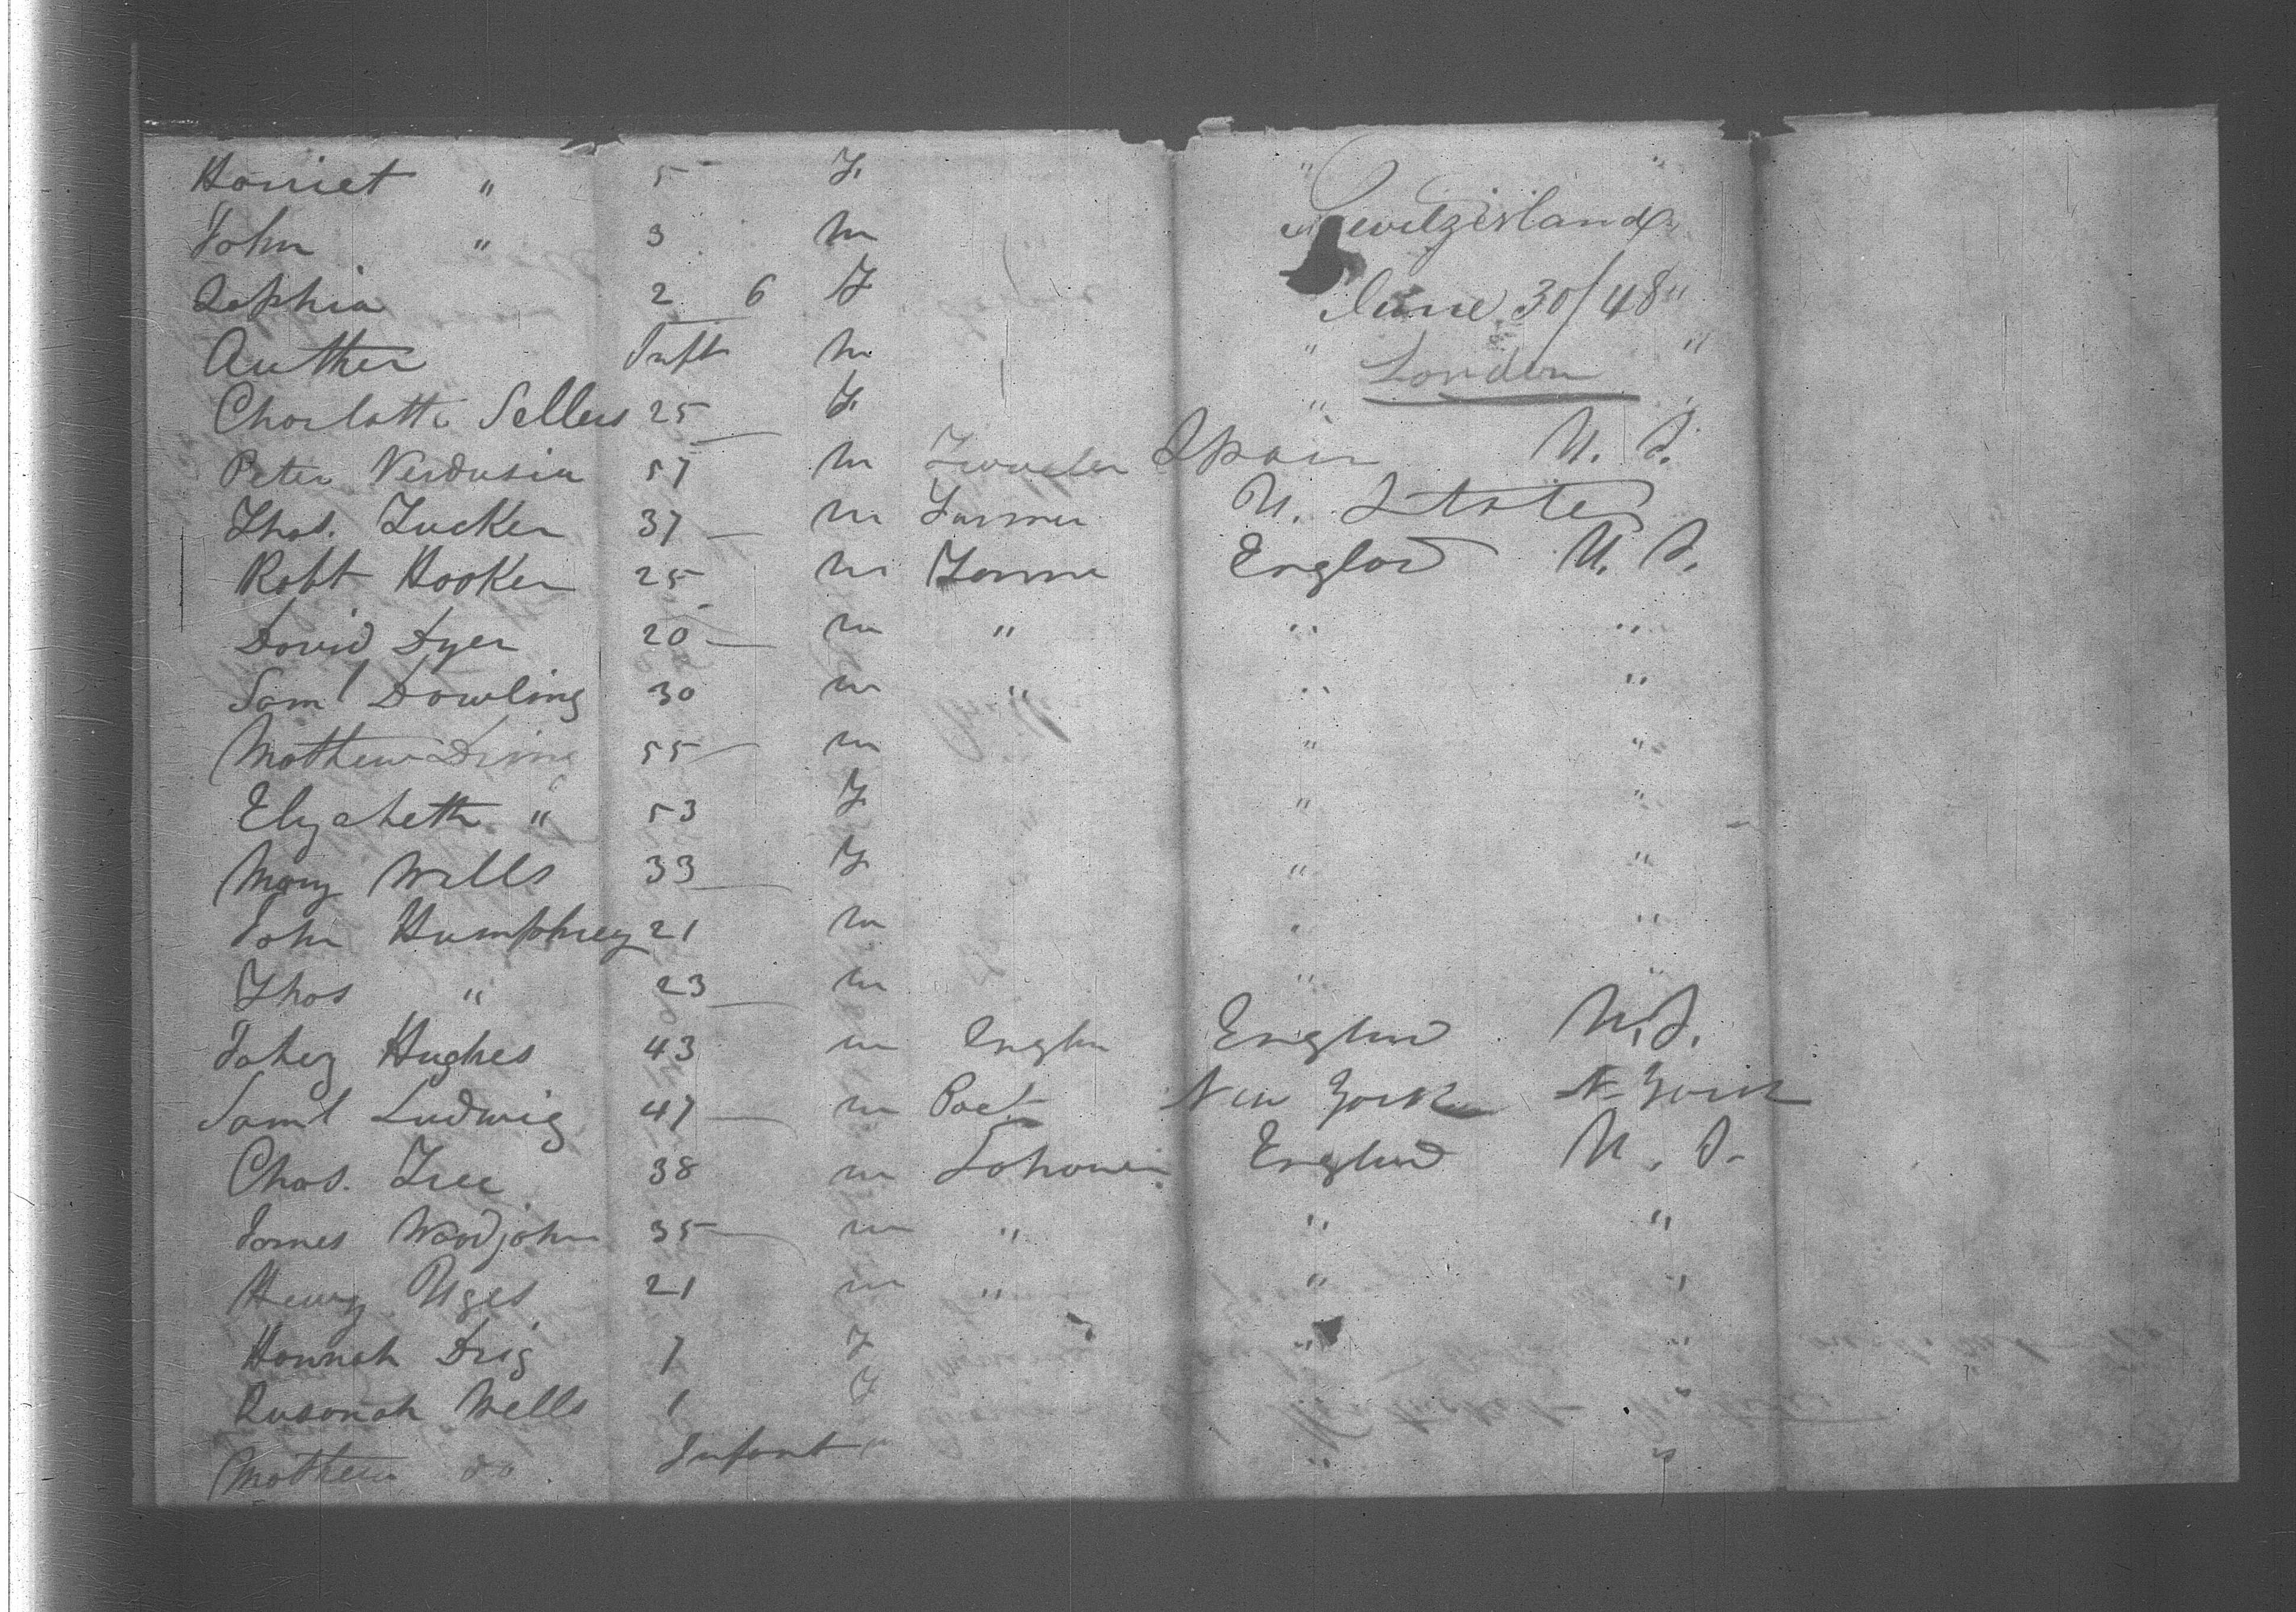 Harriet " 5 F. " "
John " 3 m Switzerland
Sophia 2 6 F June 30/48 "
Auther Inft m " London "
Charlotte Sellers 25 F. "
Peter Verdusia 57 m Spain U. S.
Thos. Tucker 37 m Farmer U. States
Robt Hooker 25 m Farmer England U. S.
David Dyer 20 m " " "
Saml Dowling 30 m " " "
Mathew 55 m " "
Elizabeth " 53 F " "
Mary Wells 33 F " "
John Humphrey 21 m " "
Thos " 23 m " "
Jabez Hughes 43 m England U. S.
Saml Ludwig 47 m Poet New York N York
Chas. Tree 38 m England U. S.
James Woodjohn 35 m " " "
Henry 21 m " " "
Hannah 7 F " "
Susanah Wells 1 F " "
Mathew do Infant " "